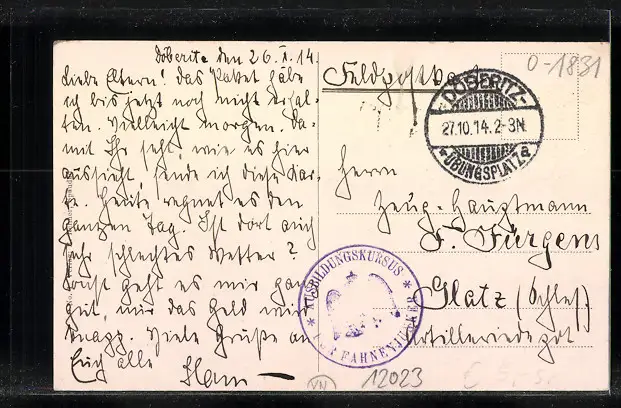 Döberitz den 26.X.14.
Liebe Eltern! Das Paket habe
ich bis jetzt noch nicht erhal-
ten. Vielleicht morgen. Da-
mit Ihr seht, wie es hier
aussieht, sende ich diese Kar-
te. Heute regnet es den
ganzen Tag. Ist dort auch
sehr schlechtes Wetter?
Sonst geht es mir ganz
gut, nur das Geld wird
knapp. Viele Grüße an
Euch alle
Feldpostkarte
0-1831
DÖBERITZ
27.10.14.2-3N.
ÜBUNGSPLATZ a
Herrn
Zeug-Hauptmann
F. Jürgens
Glatz (Schles)
Artilleriedepot
* AUSBILDUNGSKURSUS *
FAHNENJUNKER
VN
12023